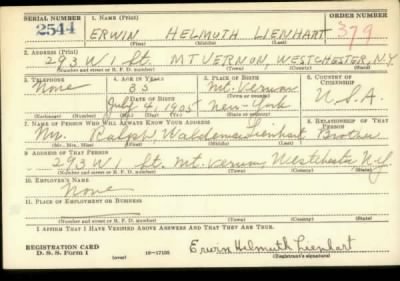 SERIAL NUMBER 1. NAME (Print) ORDER NUMBER
2544 ERWIN HELMUTH LIENHART 379
(First) (Middle) (Last)
2. ADDRESS (Print)
293 W 1 St. MT VERNON, WESTCHESTER, N.Y.
(Number and street or R. F. D. number) (Town) (County) (State)
3. TELEPHONE 4. AGE IN YEARS 5. PLACE OF BIRTH 6. COUNTRY OF CITIZENSHIP
None 35 Mt. Vernon
(Town or county)
DATE OF BIRTH
July 4, 1905 New-York U.S.A.
(Exchange) (Number) (Mo.) (Day) (Yr.) (State or country)
7. NAME OF PERSON WHO WILL ALWAYS KNOW YOUR ADDRESS 8. RELATIONSHIP OF THAT PERSON
Mr. Ralph Waldemar Lienhart Brother
(Mr., Mrs., Miss) (First) (Middle) (Last)
9. ADDRESS OF THAT PERSON
293 W 1 St. Mt. Vernon, Westchester N.Y.
(Number and street or R. F. D. number) (Town) (County) (State)
10. EMPLOYER'S NAME
None
11. PLACE OF EMPLOYMENT OR BUSINESS
(Number and street or R. F. D. number) (Town) (County) (State)
I AFFIRM THAT I HAVE VERIFIED ABOVE ANSWERS AND THAT THEY ARE TRUE.
REGISTRATION CARD
D. S. S. Form 1 (over) 16—17105
Erwin Helmuth Lienhart
(Registrant's signature)